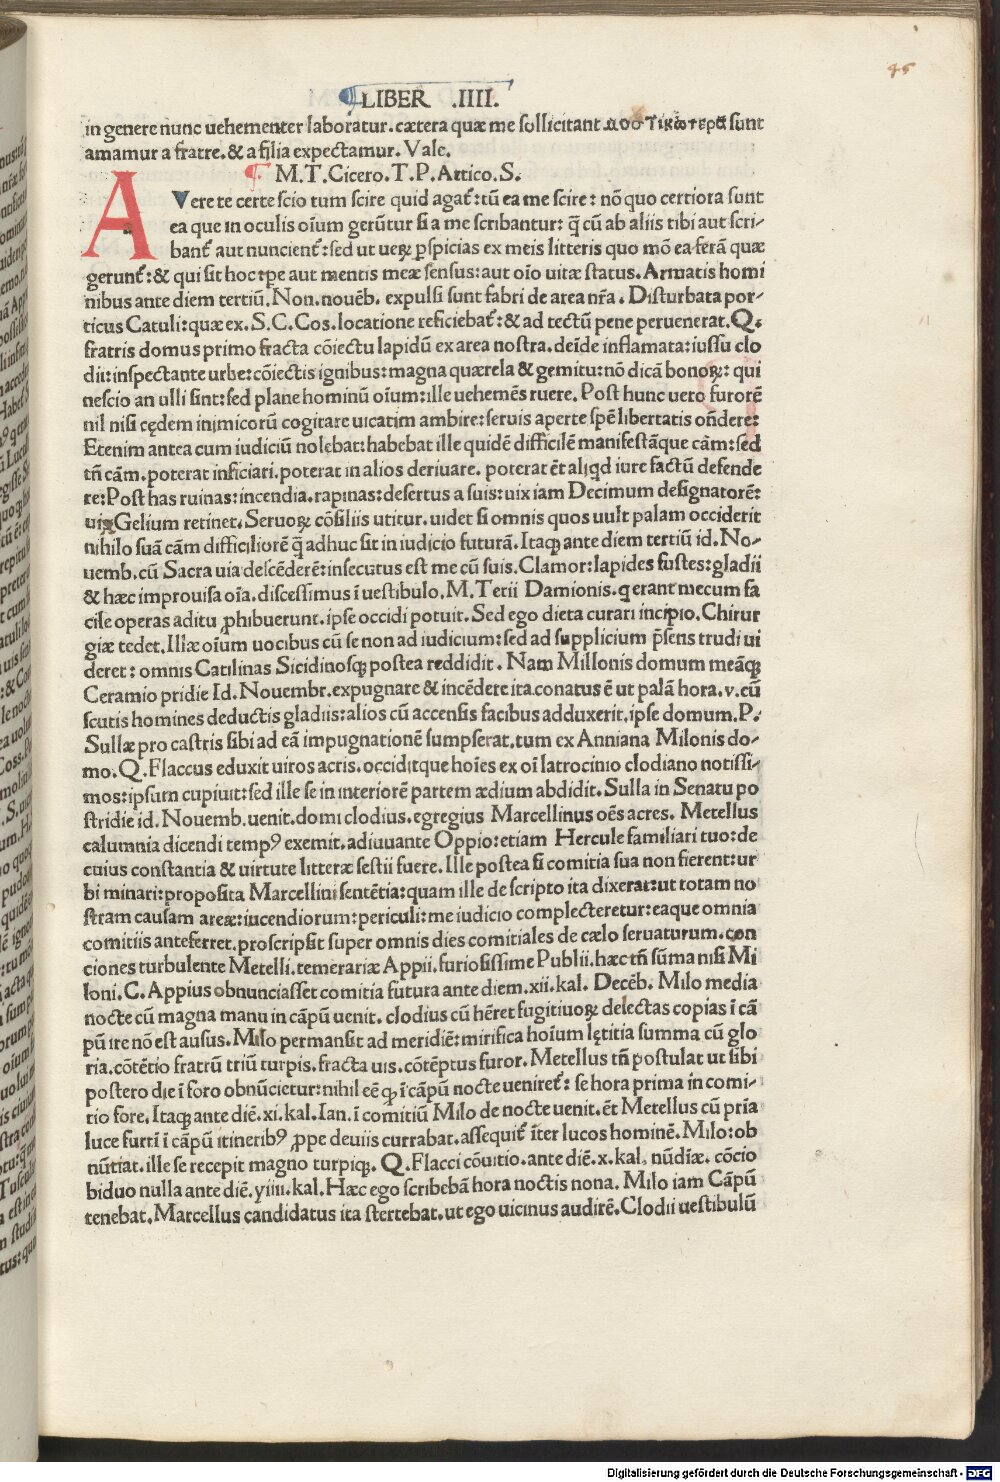 45
LIBER .IIII.
in genere nunc uehementer laboratur. cætera quæ me sollicitant sunt
amamur a fratre. & a filia expectamur. Vale.
M.T. Cicero. T.P. Attico. S.
A Vere te certe scio tum scire quid agat᷑: tū ea me scire: nō quo certiora sunt
ea que in oculis oīum gerūtur si a me scribantur: q̄ cū ab aliis tibi aut scri-
bant᷑ aut nuncient᷑: sed ut ueꝝ ꝑspicias ex meis litteris quo mō ea ferā quæ
gerunt᷑: & qui sit hoc tpe aut mentis meæ sensus: aut oīo uitæ status. Armatis homi
nibus ante diem tertiū. Non. nouēb. expulsi sunt fabri de area nr̄a. Disturbata por-
ticus Catuli: quæ ex. S.C. Cos. locatione reficiebat᷑: & ad tectū pene peruenerat. Q.
fratris domus primo fracta cōiectu lapidū ex area nostra. deīde inflamata: iussu clo
dii: inspectante urbe: cōiectis ignibus: magna quærela & gemitu: nō dicā bonoꝝ: qui
nescio an ulli sint: sed plane hominū oīum: ille uehemēs ruere. Post hunc uero furorē
nil nisi cędem inimicorū cogitare uicatim ambire: seruis aperte spē libertatis oñdere:
Etenim antea cum iudiciū nolebat: habebat ille quidē difficilē manifestāque cām: sed
tñ cām. poterat inficiari. poterat in alios deriuare. poterat ēt aliqd iure factū defende
re: Post has ruinas: incendia. rapinas: desertus a suis: uix iam Decimum designatorē:
uix Gelium retinet. Seruoꝝ cōsiliis utitur. uidet si omnis quos uult palam occiderit
nihilo suā cām difficiliorē q̄ adhuc sit in iudicio futurā. Itaqꝫ ante diem tertiū id. No-
uemb. cū Sacra uia descēderē: insecutus est me cū suis. Clamor: lapides fustes: gladii
& hæc improuisa oīa. discessimus ī uestibulo. M. Tetii Damionis. q erant mecum fa
cile operas aditu ꝓhibuerunt. ipse occidi potuit. Sed ego dieta curari incipio. Chirur
giæ tedet. Illæ oīum uocibus cū se non ad iudicium: sed ad supplicium p̄sens trudi ui
deret: omnis Catilinas Sicidinosqꝫ postea reddidit. Nam Millonis domum meāqꝫ
Ceramio pridie Id. Nouembr. expugnare & incēdere ita conatus ē ut palā hora. v. cū
scutis homines deductis gladiis: alios cū accensis facibus adduxerit. ipse domum. P.
Sullæ pro castris sibi ad eā impugnationē sumpserat. tum ex Anniana Milonis do-
mo. Q. Flaccus eduxit uiros acris. occiditque hoīes ex oī latrocinio clodiano notissi-
mos: ipsum cupiuit: sed ille se in interiorē partem ædium abdidit. Sulla in Senatu po
stridie id. Nouemb. uenit. domi clodius. egregius Marcellinus oēs acres. Metellus
calumnia dicendi tempꝰ exemit. adiuuante Oppio: etiam Hercule familiari tuo: de
cuius constantia & uirtute litteræ sestii fuere. Ille postea si comitia sua non fierent: ur
bi minari: proposita Marcellini sentētia: quam ille de scripto ita dixerat: ut totam no
stram causam areæ: iucendiorum: periculi: me iudicio complecteretur: eaque omnia
comitiis anteferret. proscripsit super omnis dies comitiales de cælo seruaturum. con
ciones turbulente Metelli. temerariæ Appii. furiosissime Publii. hæc tñ sūma nisi Mi
loni. C. Appius obnunciasset comitia futura ante diem. xii. kal. Decēb. Milo media
nocte cū magna manu in cāpū uenit. clodius cū hēret fugitiuoꝝ delectas copias ī cā
pū ire nō est ausus. Milo permansit ad meridiē: mirifica hoīum lętitia summa cū glo
ria. cōtētio fratrū triū turpis. fracta uis. cōtēptus furor. Metellus tñ postulat ut sibi
postero die ī foro obnūcietur: nihil eē qꝫ ī cāpū nocte ueniret᷑: se hora prima in comi-
tio fore. Itaqꝫ ante diē. xi. kal. Ian. ī comitiū Milo de nocte uenit. ēt Metellus cū prīa
luce furti ī cāpū itineribꝰ ꝓpe deuiis currabat. assequit᷑ īter lucos hominē. Milo: ob
nūtiat. ille se recepit magno turpiqꝫ. Q. Flacci cōuitio. ante diē. x. kal. nūdīæ. cōcio
biduo nulla ante diē. yiiii. kal. Hæc ego scribebā hora noctis nona. Milo iam Cāpū
tenebat. Marcellus candidatus ita stertebat. ut ego uicinus audirē. Clodii uestibulū
Digitalisierung gefördert durch die Deutsche Forschungsgemeinschaft - DFG